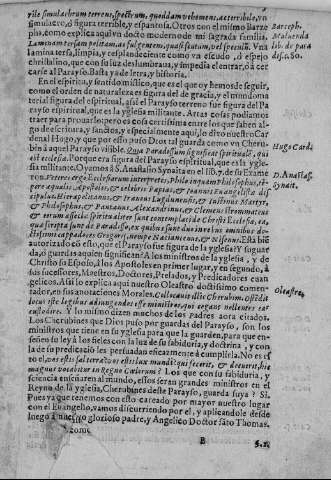 rile simulachrum terrens, spectrum, quoddam vehemens, ac terribile, vn
simulacro, o figura terrible, y espantosa. Otros con el mismo Barze
pha, como explica aqui vn docto moderno de mi sagrada familia,
tersa, limpia, y resplandeciente como vn escudo, ò espejo
chrystalino, que con su luz deslumbraua, y impedia el entrar, ò a cer
carse al Parayso. Basta ya de letra, y historia.
En el espiritu, y sentido mistico, que es el que oy hemos de seguir,
como el orden de naturaleza es figura del de gracia, y el mundo ma
terial figura del espiritual, assi el Parayso terreno fue figura del Pa
rayso espiritual, que es la yglesia militante. Artas cosas podiamos
traer para prouarlo; pero es cosa certissima entre los que saben al-
go de escritura, y sanctos, y especialmente aqui, lo dixo nuestro Car
denal Hugo, y que por esto puso Dios tal guarda como vn Cheru-
bin à aquel Parayso visible. Quia Paradisum significat spiritualē, qui
est ecclesia. Porque era figura del Parayso espiritual, que es la ygle-
sia militante. Oyamos à S. Anastasio Synaita en el lib. 7. de su Exame
ron. Veteres ergo Ecclesiarum interpretes, Philo inquam Philosophus,
pere aqualis Apostolis, & celebris Papias, & Ioannis Euangelistæ dis
cipulus Hierapolitanus, & Iræneus Lugdunensis, & Iustinus Martyr,
& Philosophus, & Pantanus, Alexandrinus, & Clemens Strommateus
& eorum assecla spiritualiter sunt contemplati de Christi Ecclesia, ea,
qua scripta sunt de Paradiso, ex quibus sunt duo in rebus omnibus do
ctissimi cappadoces Gregorij, nempe Nacianzenus, & Nissenus. Està biē
autorizado cō esto, que el Parayso fue figura de la yglesia? Y sugue
da, ò guardas a quien significan? A los ministros de la yglesia, y de
Christo su Esposo, à los Apostoles en primer lugar, y en segundo, à
sus sucessores, Maestros, Doctores, Prelados, y Predicadores euan
gelicos. Assi lo explica aqui nuestro Oleastro doctissimo comen-
tador, en sus anotaciones Morales.
locus iste legibus
custodire. Y lo mismo dizen muchos de los Padres aora citados.
Los Cherubines que Dios puso por guardas del Parayso, son los
ministros que tiene en su yglesia para que la guarden, para que en-
señen su ley à los fieles con la luz de su sabiduria, y doctrina, y con
la de su predicaciō les persuadan eficazmente à cumplirla. No es es
to el, vos estis sal terræ, vos estis lux mundi: qui fecerit, & docuerit, hic
magnus vocabitur in Regno Cælorum? Los que con su sabiduria, y
sciencia enseñaren al mundo, essos seran grandes ministros en el
Reyno de la yglesia, Cherubines deste Parayso, guarda suya? Si.
Pues ya que tenemos con esto careado por mayor nuestro lugar
con el Euangelio, vamos discurriendo por el, y aplicandole desde
luego à nuestro glorioso padre, y Angelico Doctor sāto Thomas.
B
Barceph.
Maluenda
lib. de para
diso. c. 60.
Hugo Card.
D. Anastas.
Synait.
Oleastro.